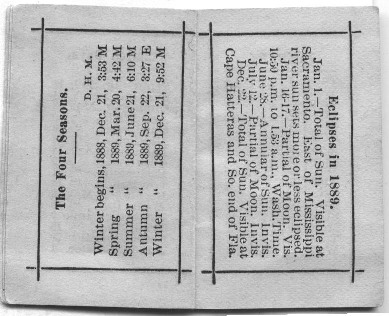 The Four Seasons.
D. H. M.
Winter begins, 1888, Dec. 21, 3:53 M
Spring " 1889, Mar. 20, 4:42 M
Summer " 1889, June 21, 6:10 M
Autumn " 1889, Sep. 22, 3:27 E
Winter " 1889, Dec. 21, 9:52 M
Eclipses in 1889.
Jan. 1.—Total of Sun. Visible at
Sacramento. East of Mississippi
river sun sets more or less eclipsed.
Jan. 16-17.—Partial of Moon. Vis.
10:50 p.m. to 1.53 a.m., Wash. Time.
June 28.—Annular of Sun. Invis.
July 12.—Partial of Moon. Invis.
Dec. 22.—Total of Sun. Visible at
Cape Hatteras and So. end of Fla.